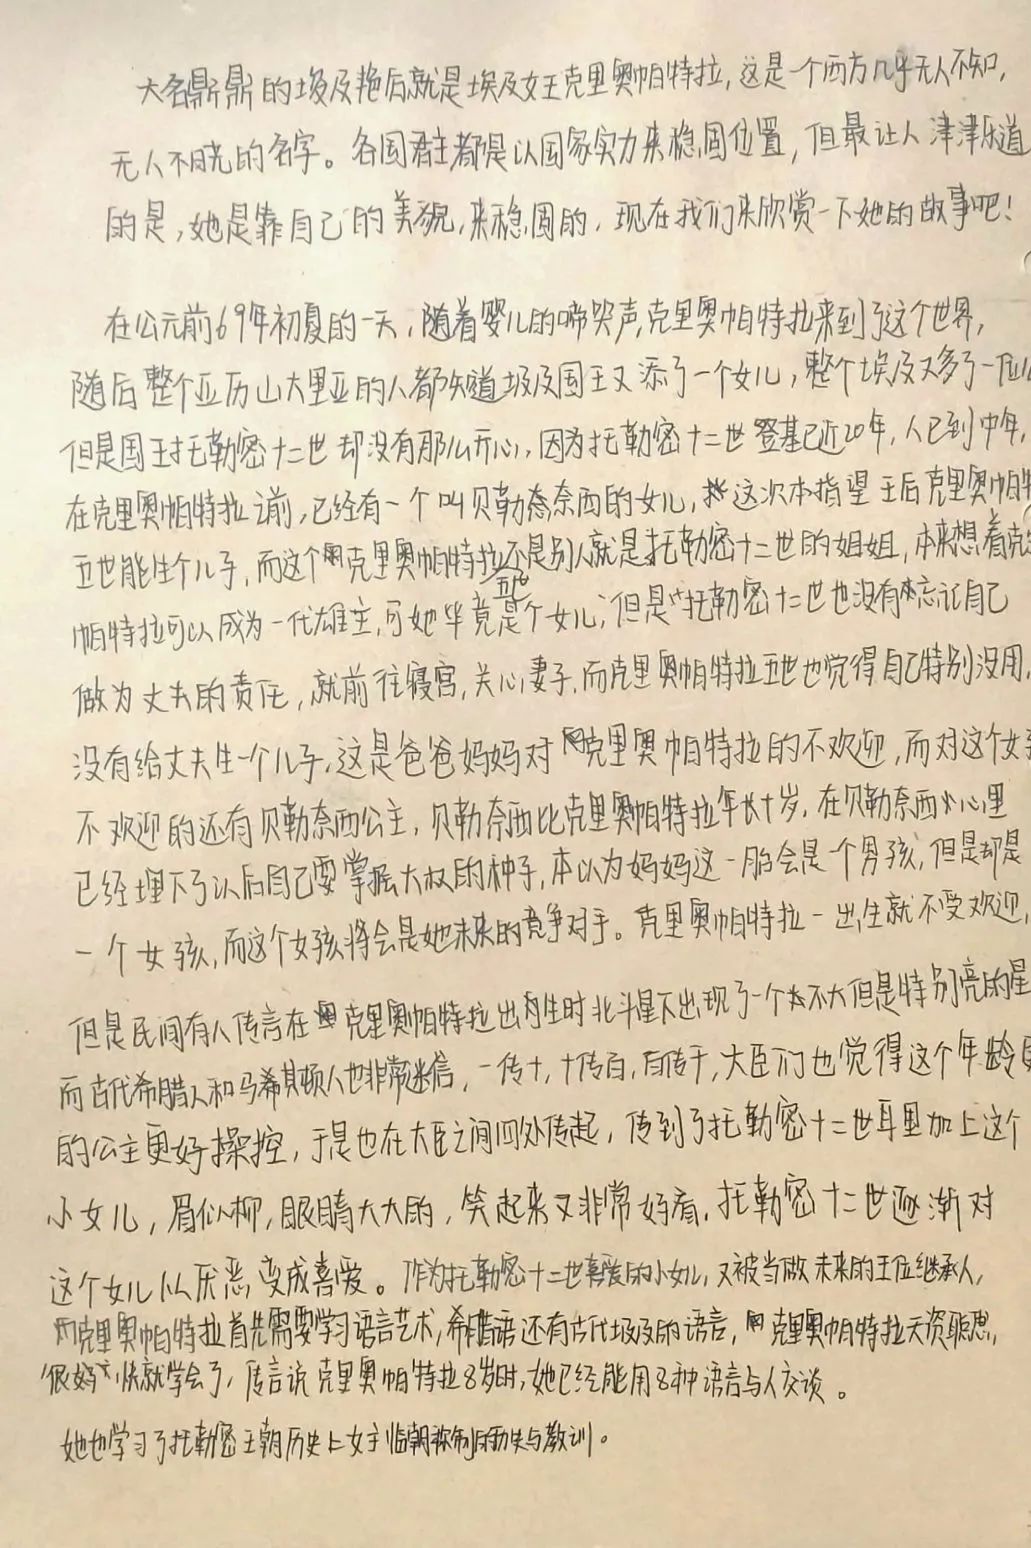 大名鼎鼎的埃及艳后就是埃及女王克里奥帕特拉,这是一个西方几乎无人不知,
无人不晓的名字。各国君主都是以国家实力来稳固位置,但最让人津津乐道
的是,她是靠自己的美貌,来稳固的,现在我们来欣赏一下她的故事吧!
在公元前69年初夏的一天,随着婴儿的啼哭声,克里奥帕特拉来到了这个世界,
随后整个亚历山大里亚的人都知道埃及国王又添了一个女儿,整个埃及又多了一位
但是国王托勒密十二世却没有那么开心,因为托勒密十二世登基已近20年,人已到中年,
在克里奥帕特拉前,已经有一个叫贝勒奈西的女儿,这次本指望王后克里奥帕特
五世能生个儿子,而这个克里奥帕特拉五世不是别人就是托勒密十二世的姐姐,本来想着克
帕特拉可以成为一代雄主,可她毕竟是个女儿,但是托勒密十二世也没有忘记自己
做为丈夫的责任,就前往寝宫,关心妻子,而克里奥帕特拉五世也觉得自己特别没用,
没有给丈夫生一个儿子,这是爸爸妈妈对克里奥帕特拉的不欢迎,而对这个女
不欢迎的还有贝勒奈西公主,贝勒奈西比克里奥帕特拉年长十岁,在贝勒奈西心里
已经埋下了以后自己要掌握大权的种子,本以为妈妈这一胎会是一个男孩,但是却是
一个女孩,而这个女孩将会是她未来的竞争对手。克里奥帕特拉一出生就不受欢迎,
但是民间有人传言在克里奥帕特拉出生时北斗星下出现了一个不大但是特别亮的星
而古代希腊人和马希其顿人也非常迷信,一传十,十传百,百传千,大臣们也觉得这个年龄
的公主更好操控,于是也在大臣之间四处传起,传到了托勒密十二世耳里加上这个
小女儿,眉似柳,眼睛大大的,笑起来又非常好看,托勒密十二世逐渐对
这个女儿从厌恶,变成喜爱。作为托勒密十二世喜爱的小女儿,又被当做未来的王位继承人,
克里奥帕特拉首先需要学习语言艺术,希腊语还有古代埃及的语言,克里奥帕特拉天资聪思,
很快就学会了,传言说克里奥帕特拉8岁时,她已经能用8种语言与人交谈。
她也学习了托勒密王朝历史上女主临朝称制的历史与教训。